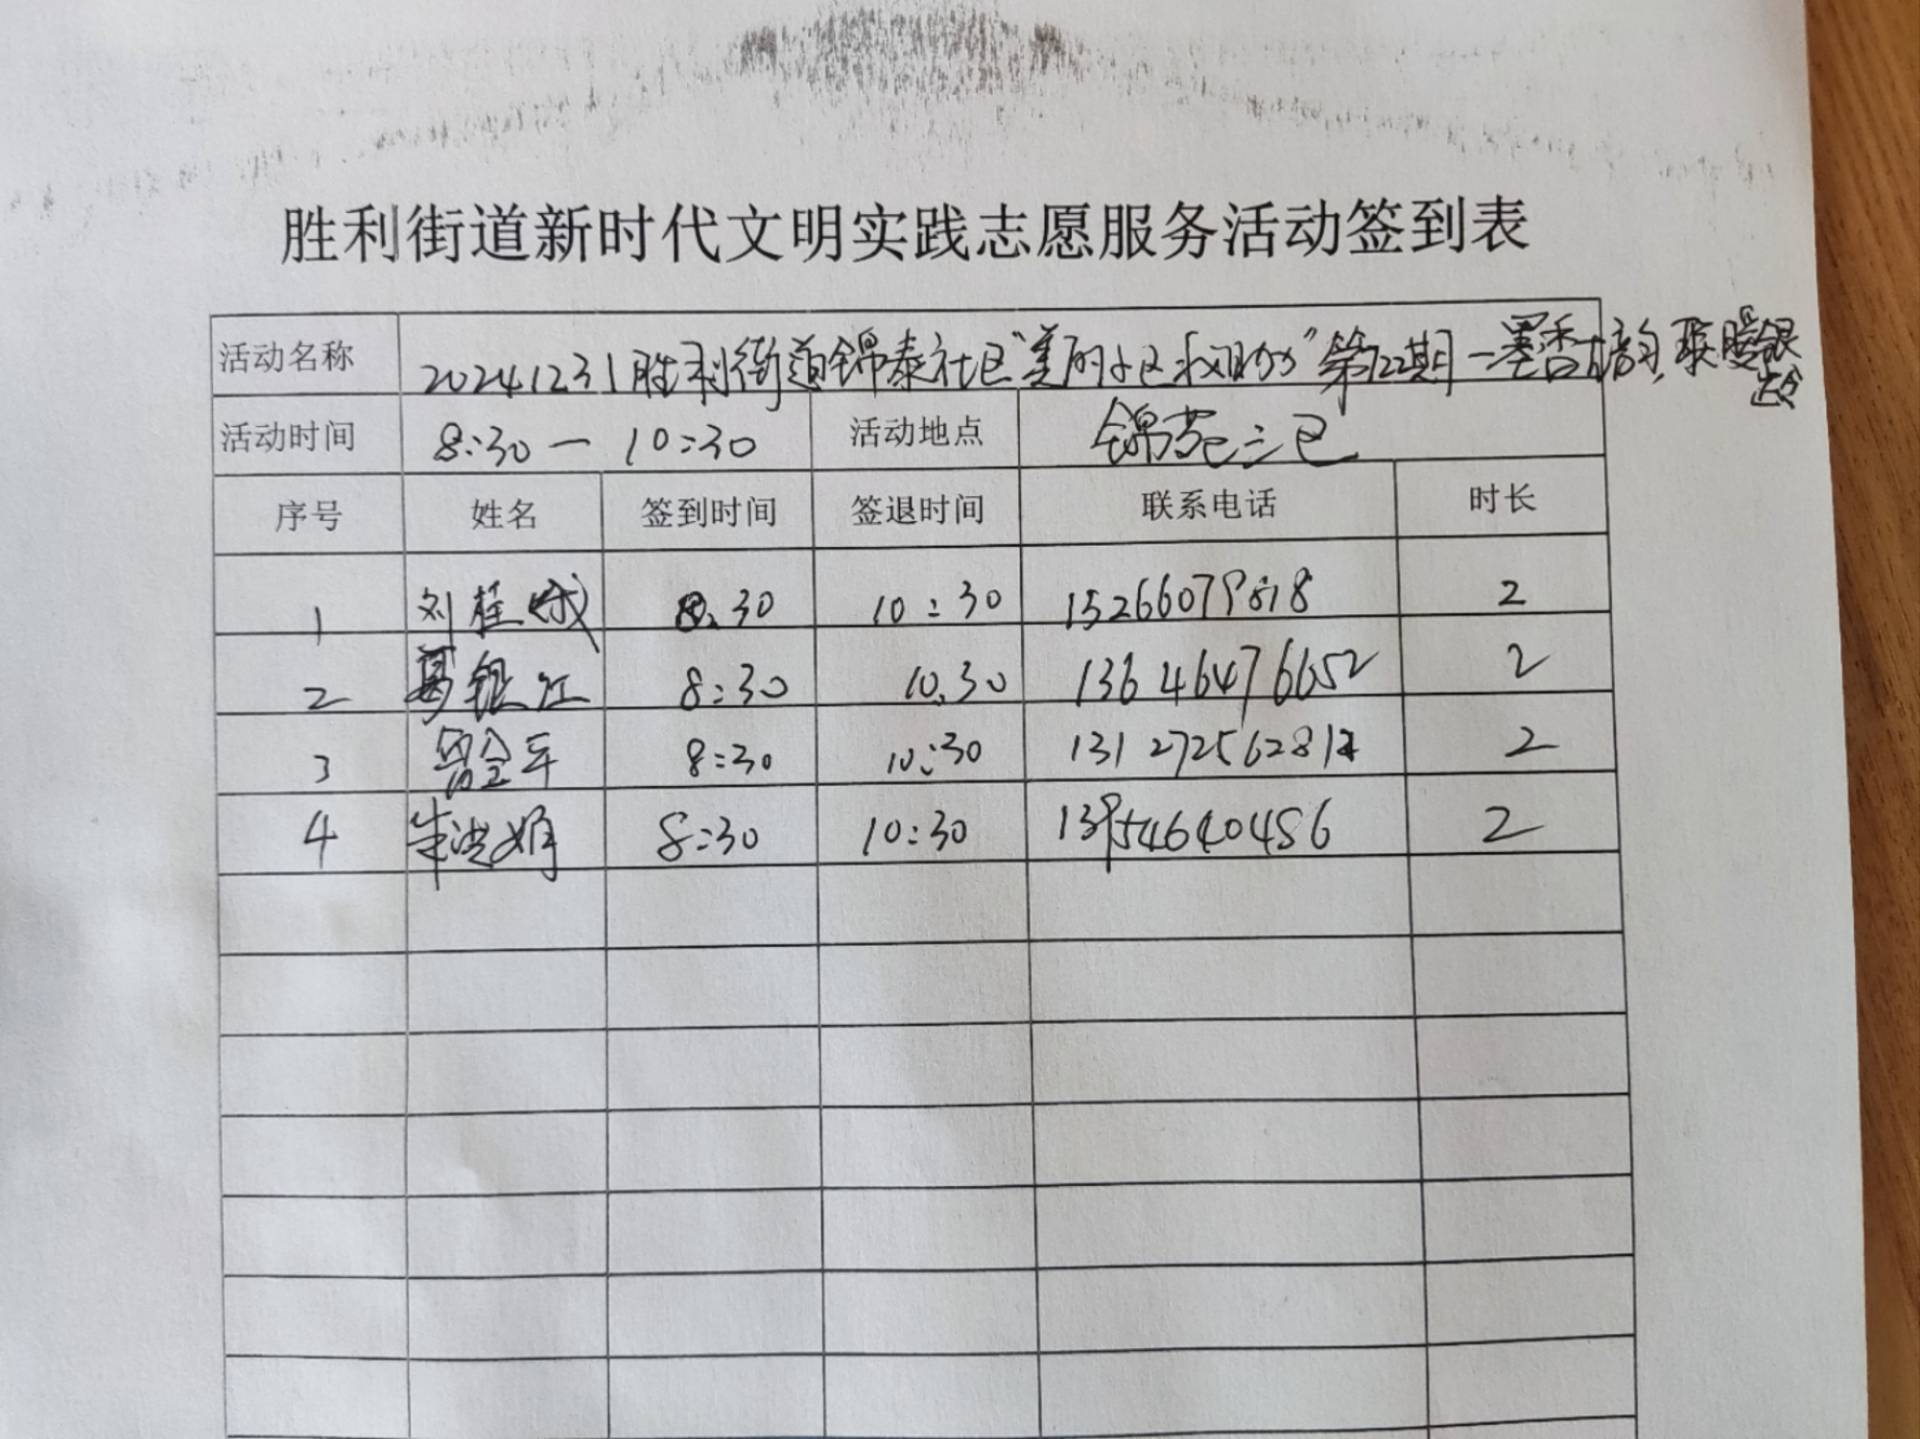 胜利街道新时代文明实践志愿服务活动签到表
活动名称 20241231胜利街道锦泰社区"美丽小区我助力"第122期一墨香 联暖银龄
活动时间 8:30一10:30 活动地点 锦苑三区
序号 姓名 签到时间 签退时间 联系电话 时长
1 刘桂 8:30 10:30 2
2 葛银江 8:30 10:30 13646476652 2
3 8:30 10:30 2
4 朱洪娟 8:30 10:30 13954640486 2